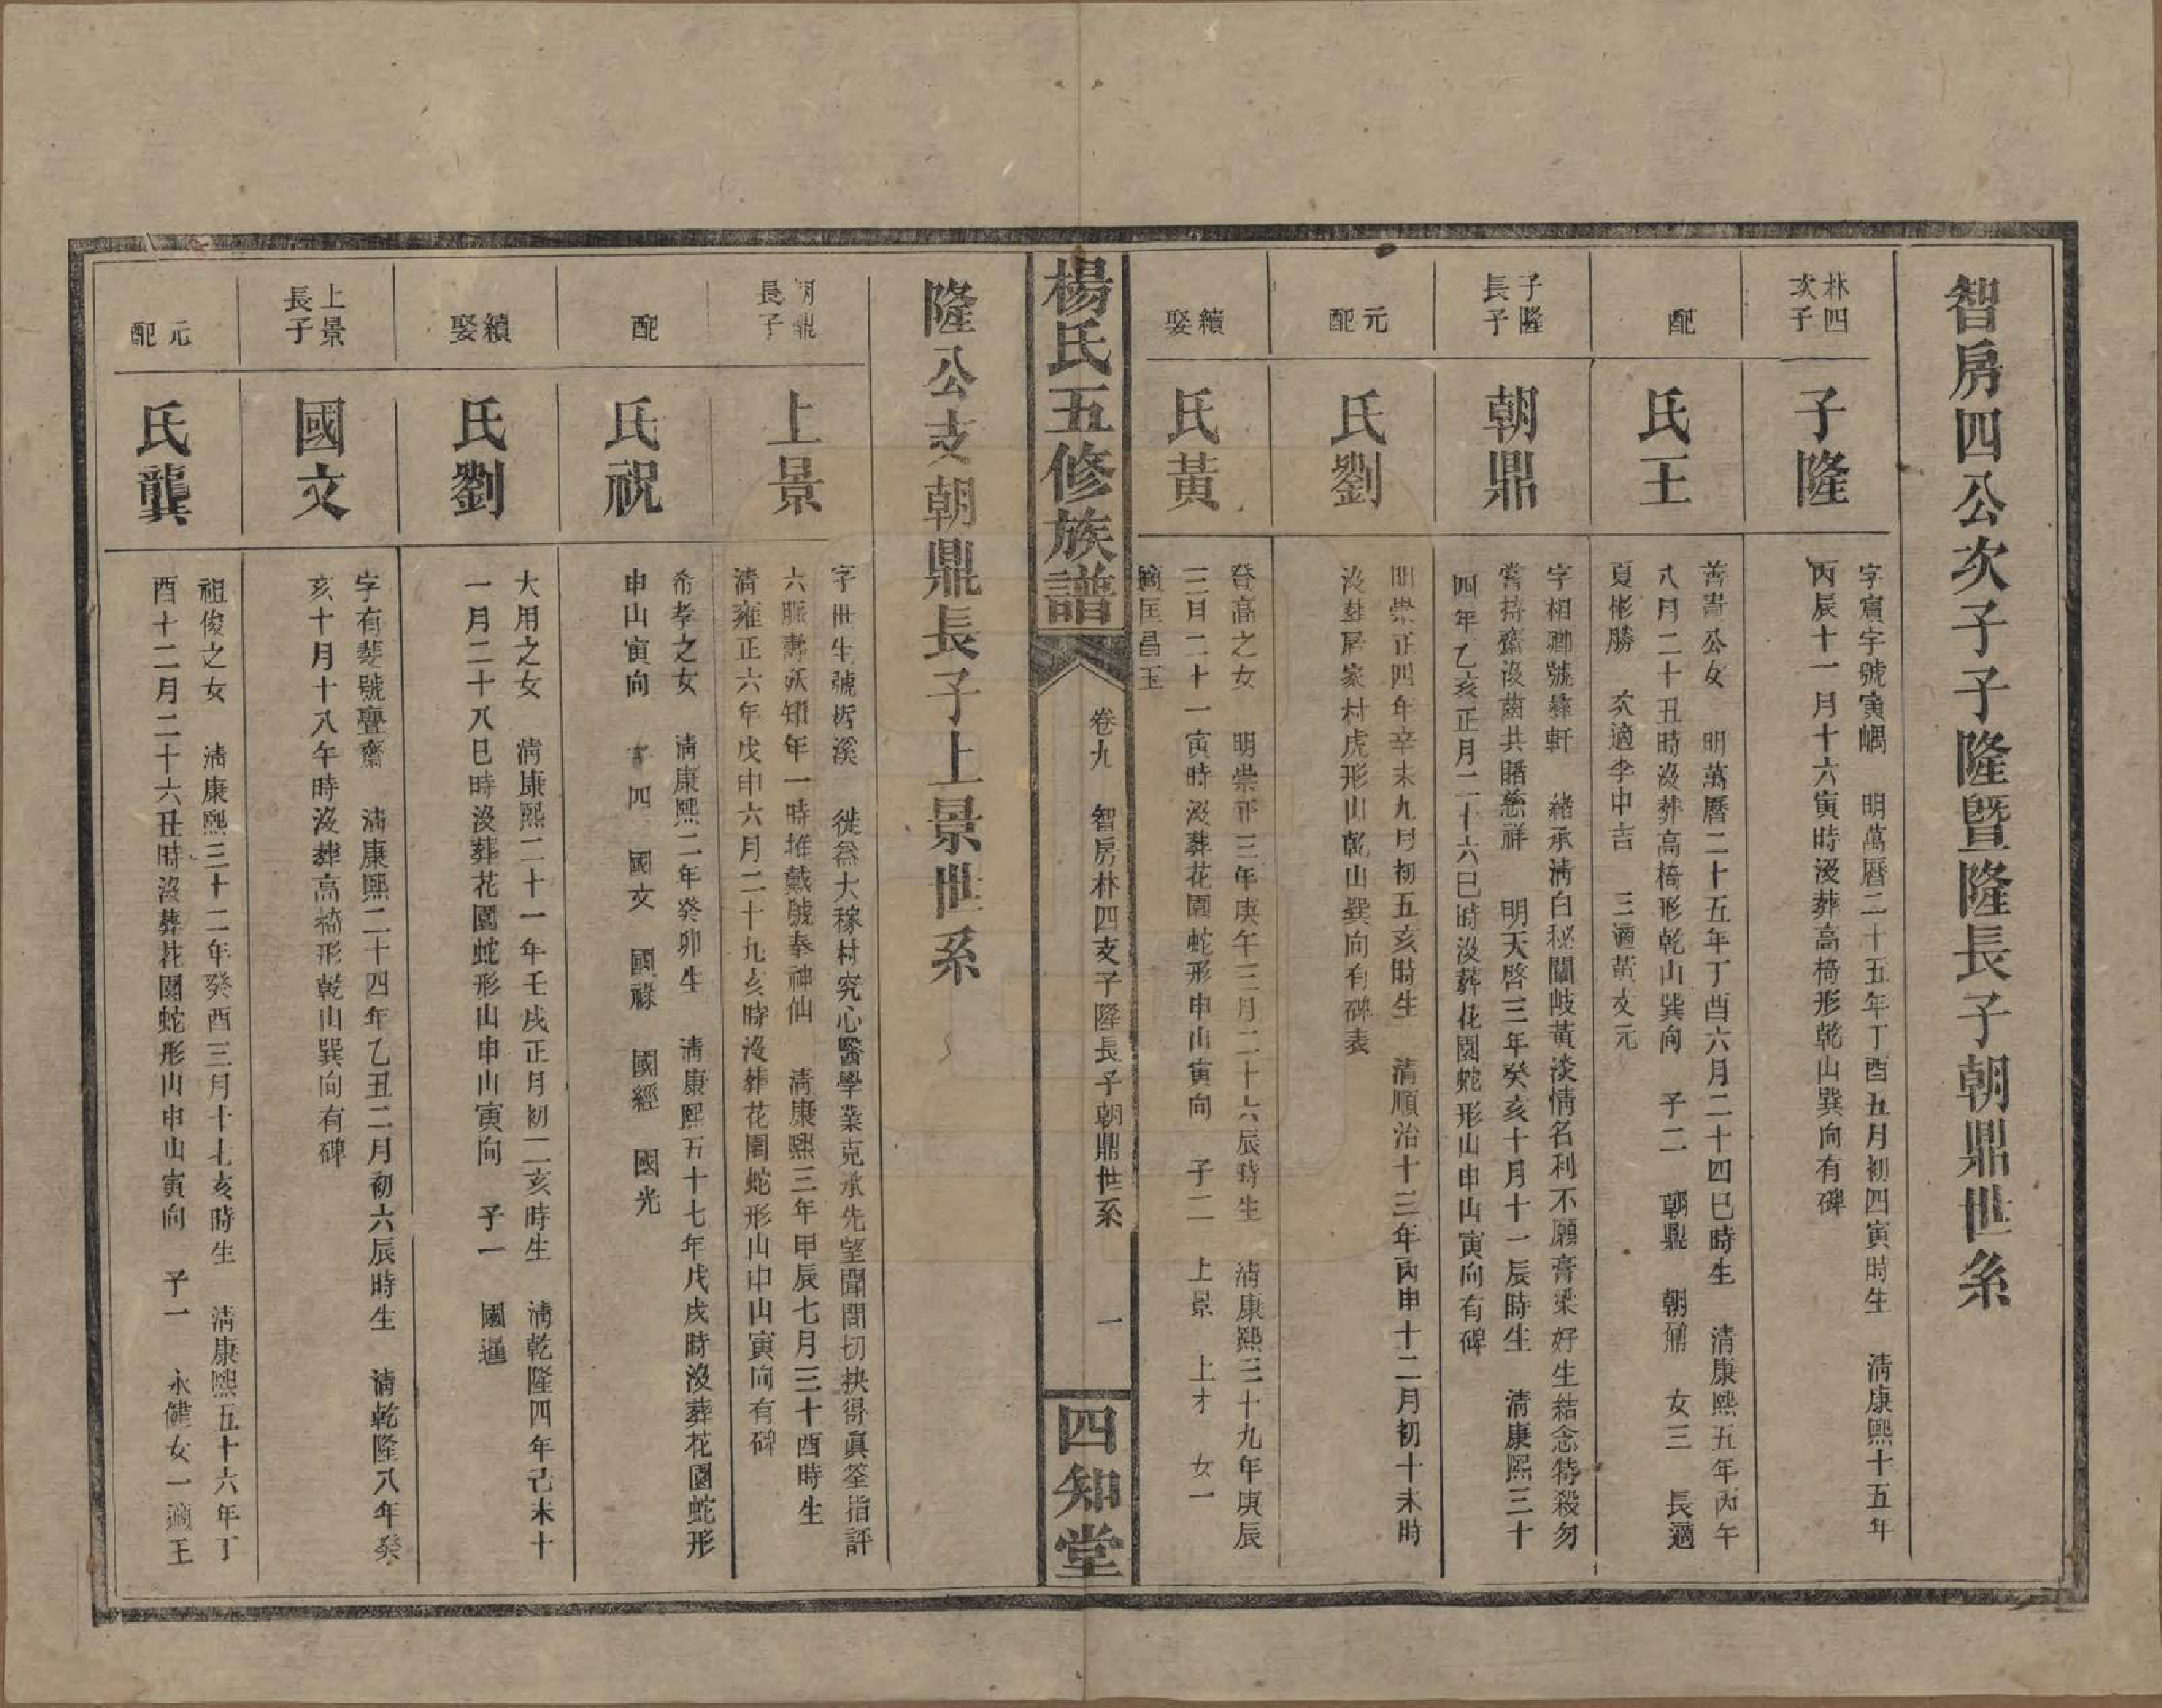 智房四公次子子隆暨隆長子朝鼎世系
林四次子
子隆
字賓宇號寅嵎　明萬曆二十五年丁酉五月初四寅時生　清康熙十五年
丙辰十一月十六寅時沒葬高椅形乾山巽向有碑
配
氏王
公女　明萬曆二十五年丁酉六月二十四巳時生　清康熙五年丙午
八月二十丑時沒葬高椅形乾山巽向　子二　朝鼎　朝鼐　女三　長適
夏彬勝　次適李中吉　三適黃文元
子隆長子
朝鼎
字相卿號彝軒　緒承清白秘闡岐黃淡情名利不願膏粱好生結念特殺勿
嘗持齋沒菌共睹慈祥　明天啓三年癸亥十月十一辰時生　清康熙三十
四年乙亥正月二十六巳時沒葬花園蛇形山申山寅向有碑
元配
氏劉
明崇正四年辛未九月初五亥時生　清順治十三年丙申十二月初十未時
沒葬居家村虎形山乾山巽向有碑表
續娶
氏黃
登高之女　明崇正三年庚午三月二十六辰時生　清康熙三十九年庚辰
三月二十一寅時沒葬花園蛇形申山寅向　子二　上景　上才　女一
適匡昌玉
楊氏五修族譜
卷九　智房林四支子隆長子朝鼎世系　一
四知堂
隆公支朝鼎長子上景世系
朝鼎長子
上景
字世生號哲溪　徙爲大稼村究心醫學業克承先望聞問切抉得眞筌指評
六脈壽殀知年一時推戴號奉神仙　清康熙三年甲辰七月三十酉時生
清雍正六年戊申六月二十九亥時沒葬花園蛇形山申山寅向有碑
配
氏祝
希孝之女　清康熙二年癸卯生　清康熙五十七年戊戌時沒葬花園蛇形
申山寅向　子四　國文　國祿　國經　國光
續娶
氏劉
大用之女　清康熙二十一年壬戌正月初二亥時生　清乾隆四年己未十
一月二十八巳時沒葬花園蛇形山申山寅向　子一　國暹
上景長子
國文
字有斐號亹齋　清康熙二十四年乙丑二月初六辰時生　清乾隆八年癸
亥十月十八午時沒葬高椅形乾山巽向有碑
元配
氏龔
祖俊之女　清康熙三十二年癸酉三月十七亥時生　清康熙五十六年丁
酉十二月二十六丑時沒葬花園蛇形山申山寅向　子一　永健女一適王